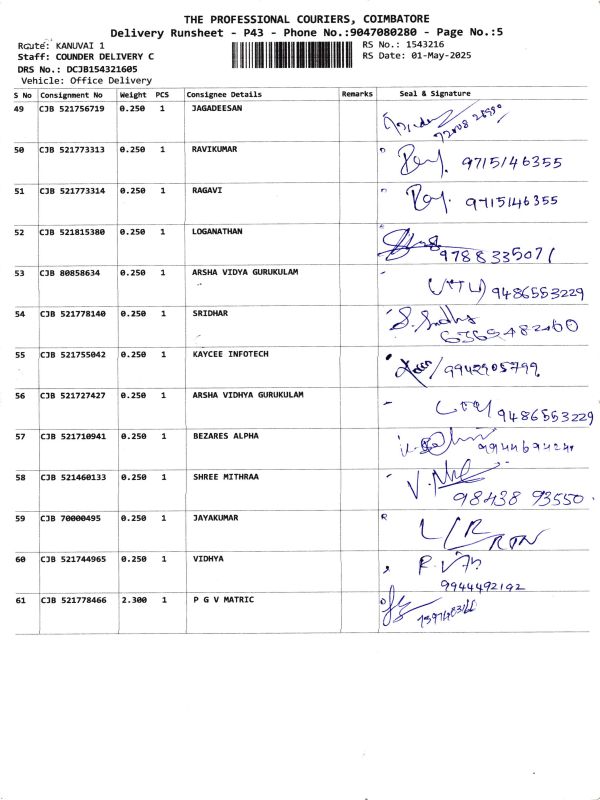 THE PROFESSIONAL COURIERS, COIMBATORE
Delivery Runsheet - P43 - Phone No.:9047080280 - Page No.:5
Route: KANUVAI 1 RS No.: 1543216
Staff: COUNDER DELIVERY C RS Date: 01-May-2025
DRS No.: DCJB154321605
Vehicle: Office Delivery
S No Consignment No Weight PCS Consignee Details Remarks Seal & Signature
49 CJB 521756719 0.250 1 JAGADEESAN
50 CJB 521773313 0.250 1 RAVIKUMAR 9715146355
51 CJB 521773314 0.250 1 RAGAVI 9715146355
52 CJB 521815380 0.250 1 LOGANATHAN 9788335071
53 CJB 80858634 0.250 1 ARSHA VIDYA GURUKULAM 9486553229
54 CJB 521778140 0.250 1 SRIDHAR
55 CJB 521755042 0.250 1 KAYCEE INFOTECH 9942905799
56 CJB 521727427 0.250 1 ARSHA VIDHYA GURUKULAM 9486553229
57 CJB 521710941 0.250 1 BEZARES ALPHA
58 CJB 521460133 0.250 1 SHREE MITHRAA 98438 93550
59 CJB 70000495 0.250 1 JAYAKUMAR L/R RTN
60 CJB 521744965 0.250 1 VIDHYA 9944492192
61 CJB 521778466 2.300 1 P G V MATRIC